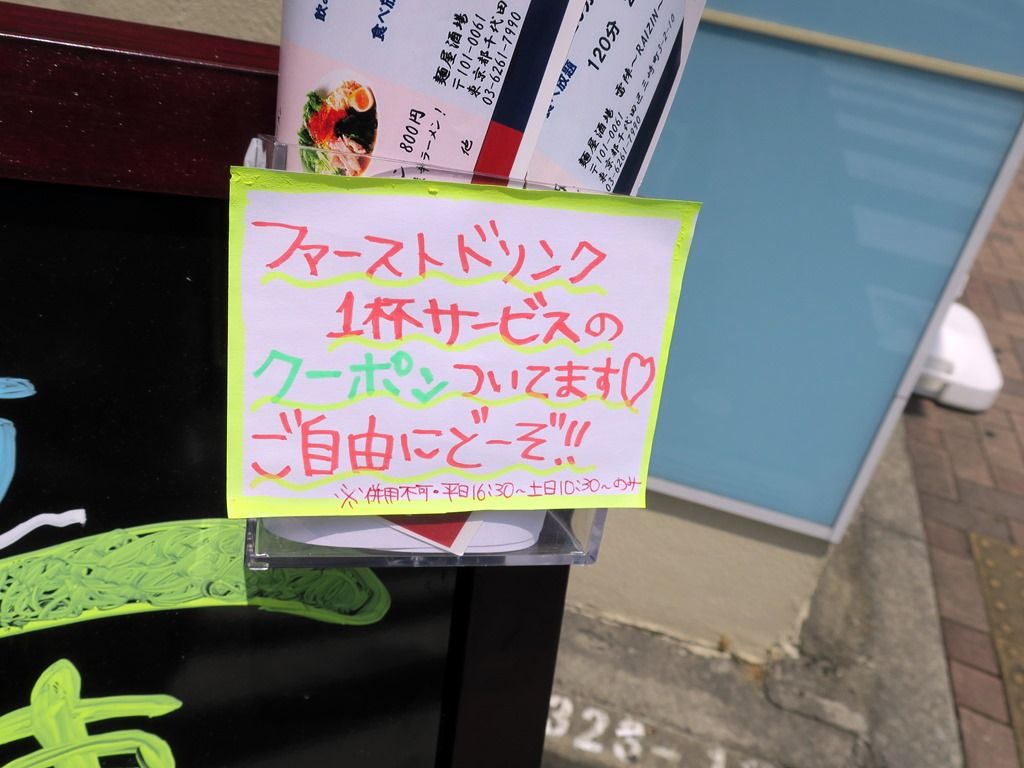 飲み
食べ放
麺屋酒場
〒101-0061
東京都千代田
03-6261-7990
800円
ラーメン!
他
120分
食べ放題
麺屋酒場 雷神~RAIZIN~
〒101-0061
東京都千代田区三崎町3-2-10
03-6261-7990
ファーストドリンク
1杯サービスの
クーポンついてます♡
ご自由にどーぞ!!
※併用不可・平日16:30~土日10:30~のみ
328-